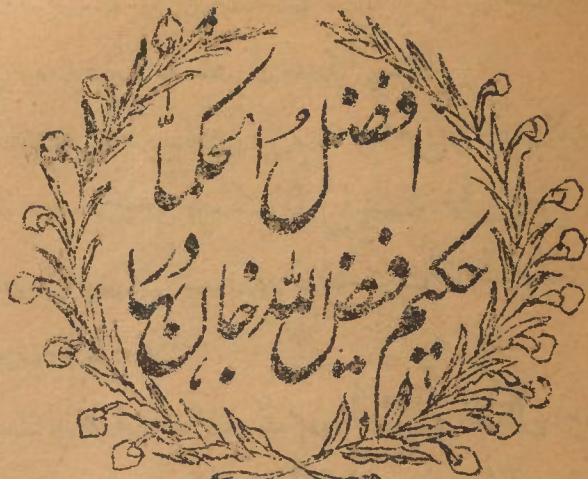 افضل الحکماء
حکیم فیض اللہ خان بہادر